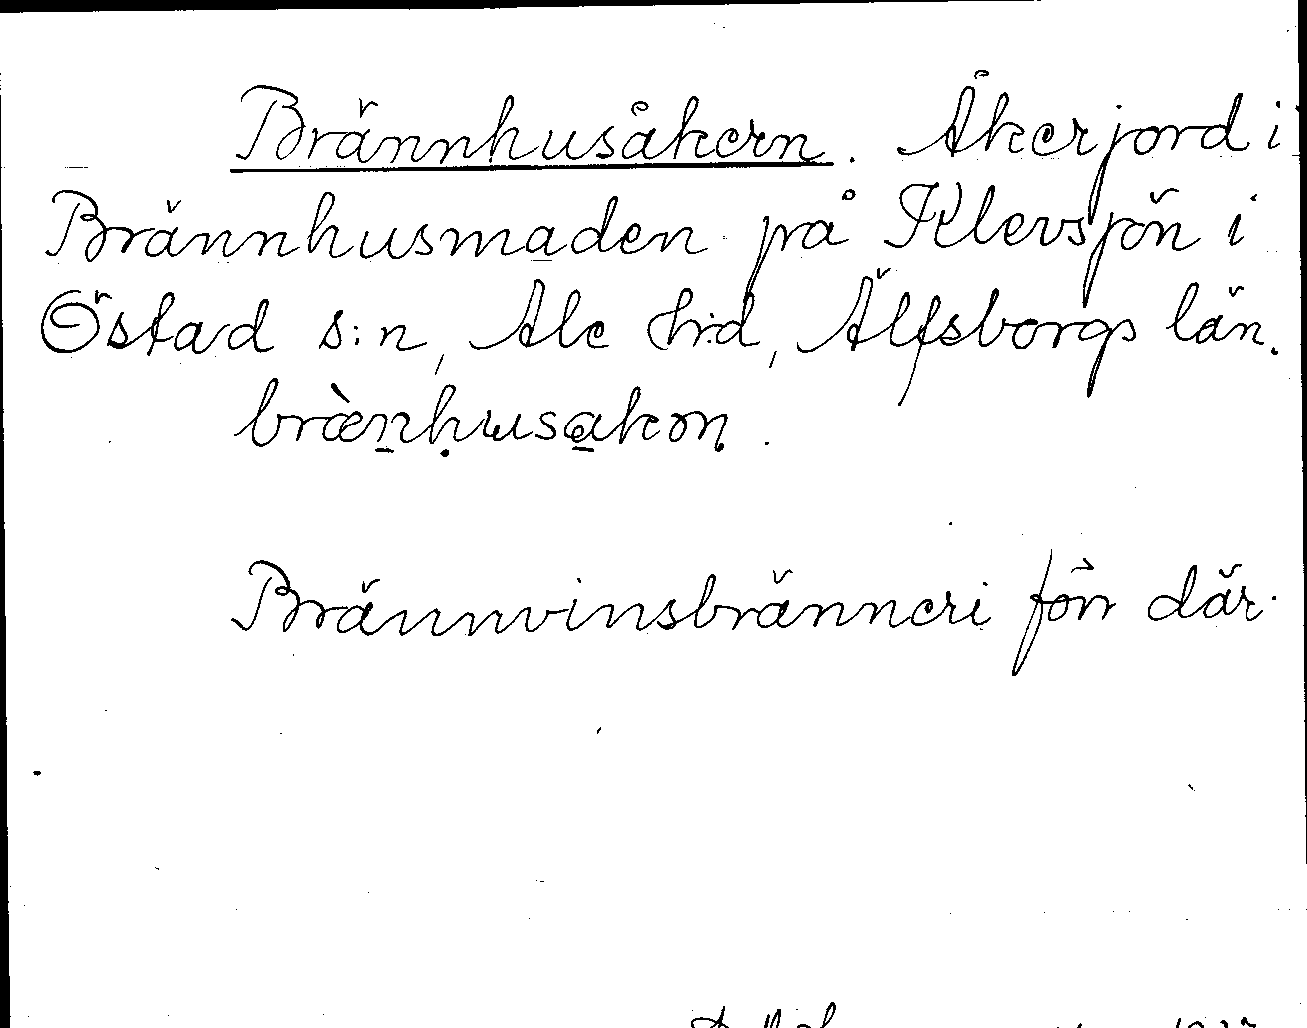 Brännhusåkern. Åkerjord i
Brännhusmaden på Klevsjön i
Östad s:n, Ale hrd, Älfsborgs län.
bræ̀nhusakon.
Brännvinsbränneri förr där.